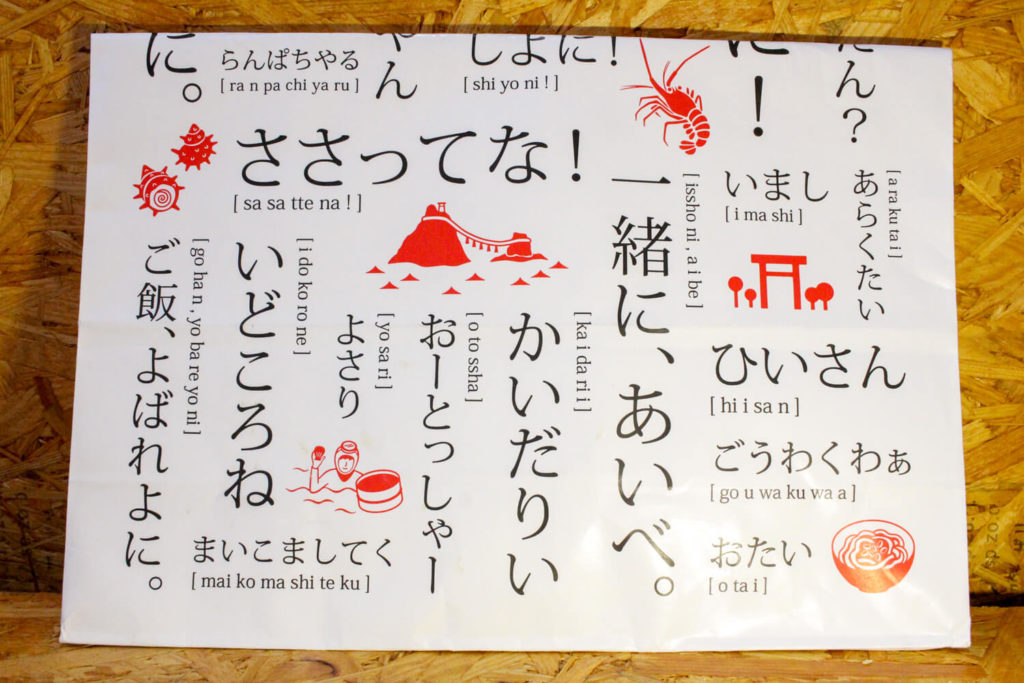 に。
らんぱちやる
[ ra n pa chi ya ru ]
ゃん
しよに！
[ shi yo ni ! ]
に！
たん？
ささってな！
[ sa sa tte na ! ]
いまし
[ i ma shi ]
あらくたい
[ a ra ku ta i ]
一緒に、あいべ。
[ issho ni , a i be ]
かいだりい
[ ka i da ri i ]
おーとっしゃー
[ o to ssha ]
よさり
[ yo sa ri ]
いどころね
[ i do ko ro ne ]
ご飯、よばれよに。
[ go ha n , yo ba re yo ni ]
ひいさん
[ hi i sa n ]
ごうわくわぁ
[ go u wa ku wa a ]
おたい
[ o ta i ]
まいこましてく
[ mai ko ma shi te ku ]